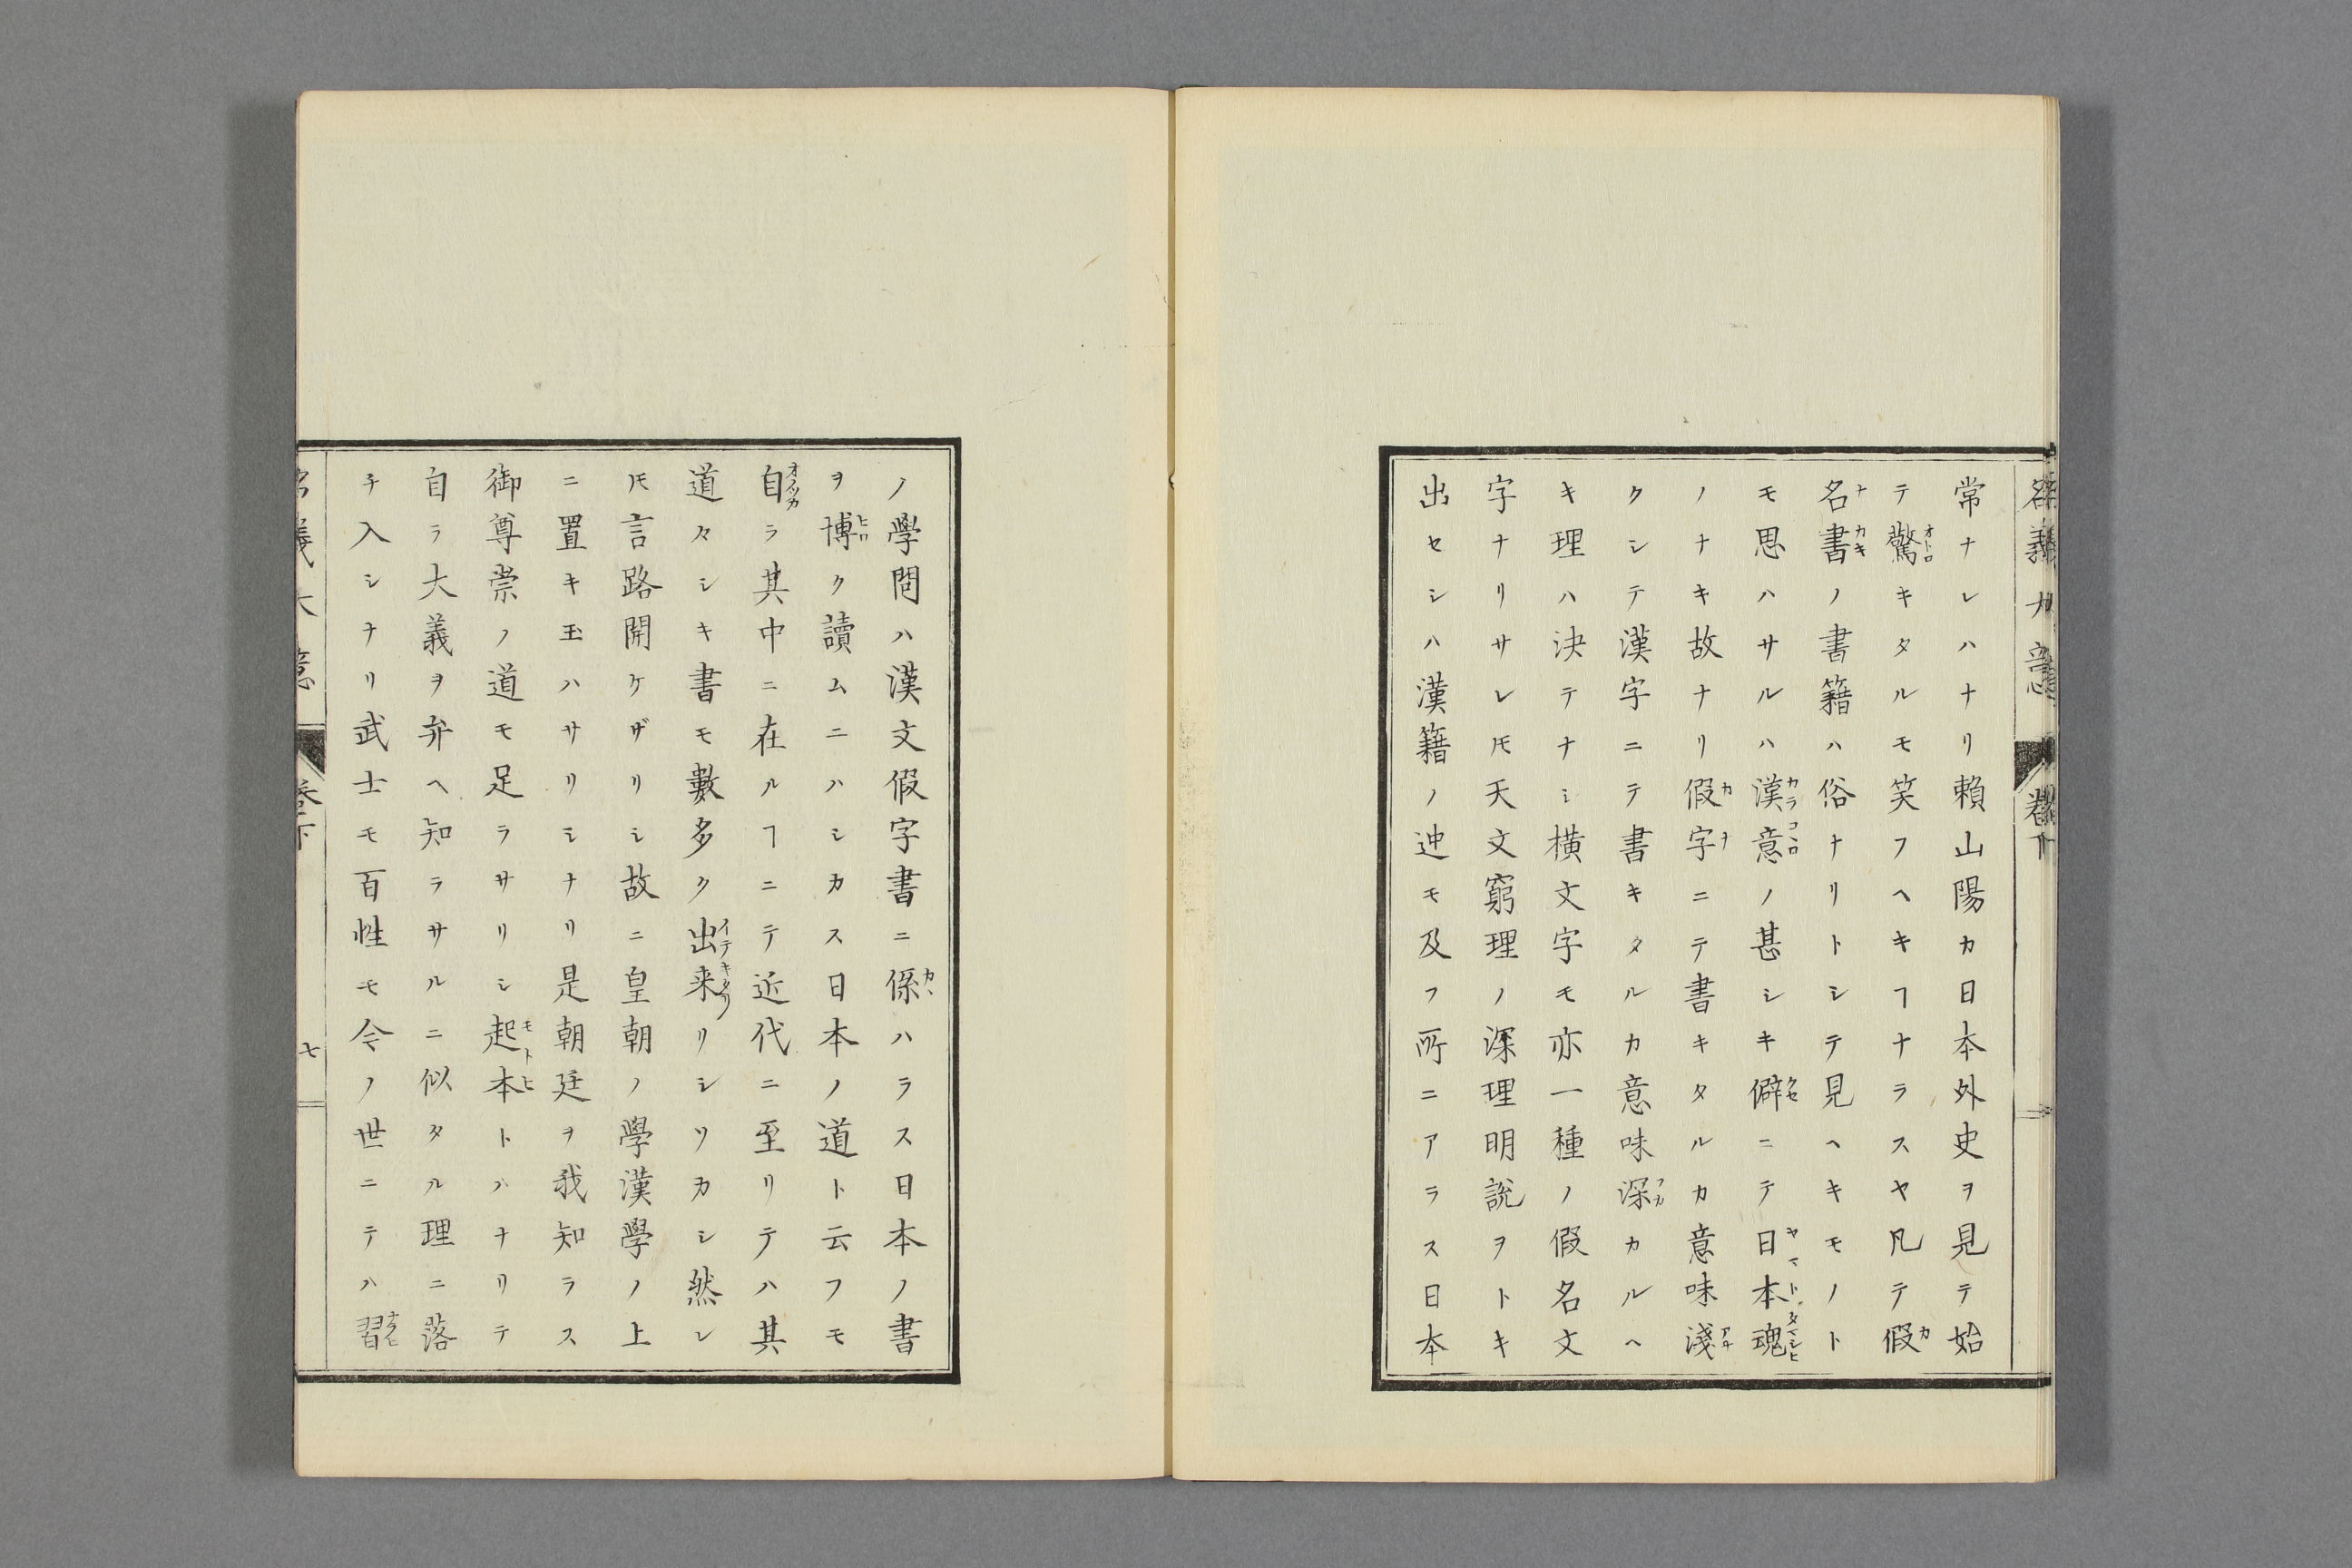 常ナレハナリ賴山陽カ日本外史ヲ見テ始
テ驚キタルモ笑フヘキヿナラスヤ凡テ假
名書ノ書籍ハ俗ナリトシテ見ヘキモノト
モ思ハサルハ漢意ノ甚シキ僻ニテ日本魂
ノナキ故ナリ假字ニテ書キタルカ意味淺
クシテ漢字ニテ書キタルカ意味深カルヘ
キ理ハ決テナシ橫文字モ亦一種ノ假名文
字ナリサレ𪜈天文窮理ノ深理明說ヲトキ
出セシハ漢籍ノ迚モ及フ所ニアラス日本
ノ學問ハ漢文假字書ニ係ハラス日本ノ書
ヲ博ク讀ムニハシカス日本ノ道ト云フモ
自ラ其中ニ在ルヿニテ近代ニ至リテハ其
道々シキ書モ數多ク出来リシソカシ然レ
𪜈言路開ケザリシ故ニ皇朝ノ學漢學ノ上
ニ置キ玉ハサリシナリ是朝廷ヲ我知ラス
御尊崇ノ道モ足ラサリシ起本トハナリテ
自ラ大義ヲ弁ヘ知ラサルニ似タル理ニ落
チ入シナリ武士モ百性モ今ノ世ニテハ習
名義大意
卷下
七